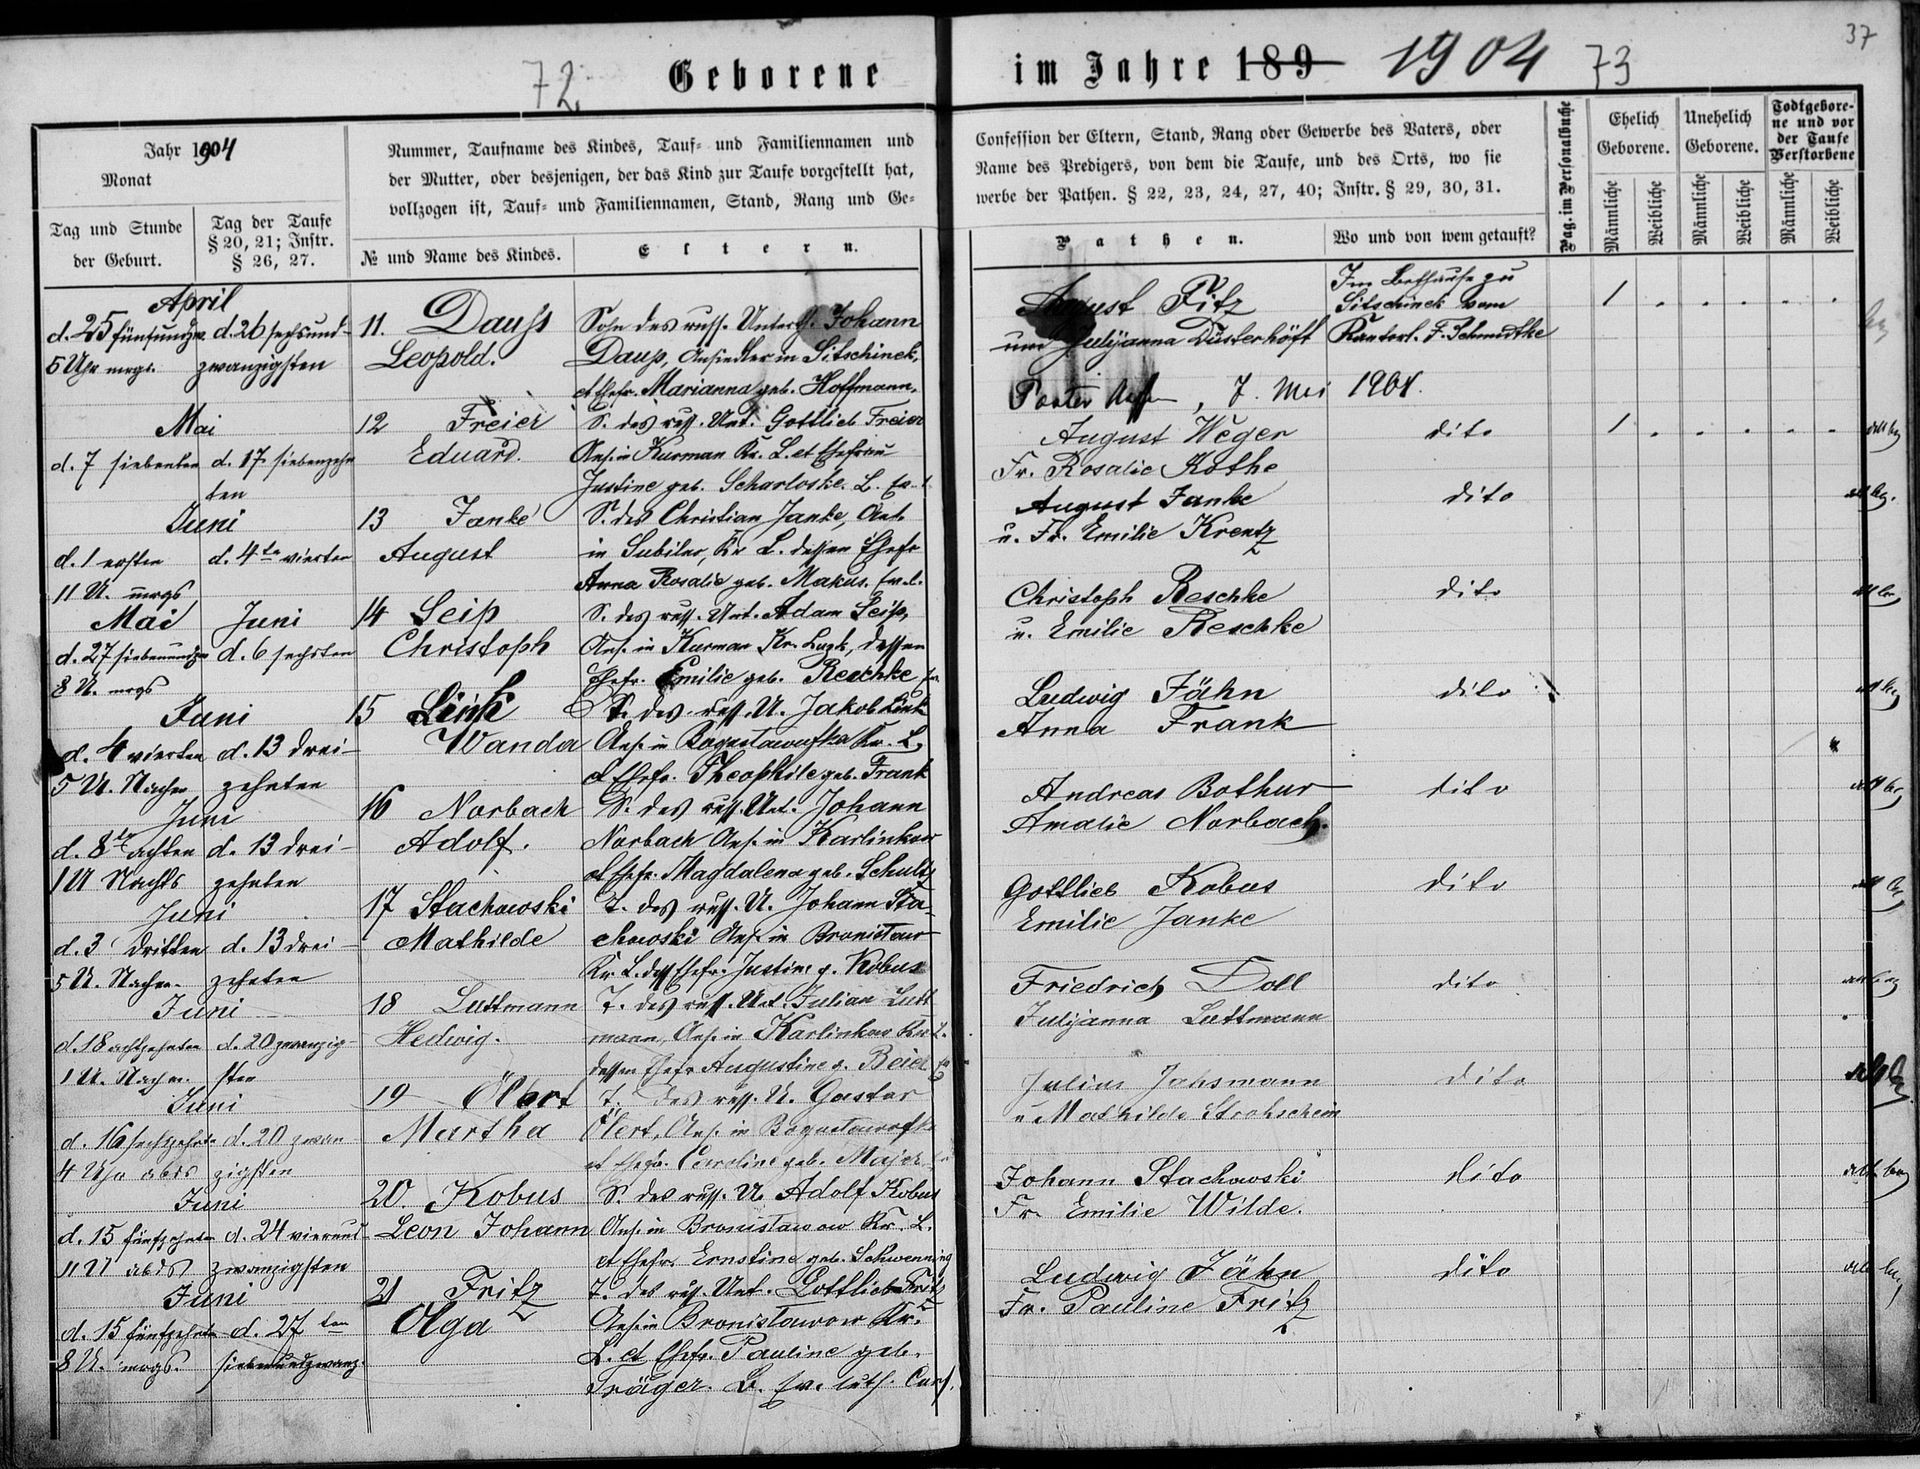 37
72. Geborene im Jahre 189 1904 73
Jahr 1904
Monat
Tag und Stunde
der Geburt.
Tag der Taufe
§ 20, 21; Instr.
§ 26, 27.
Nummer, Taufname des Kindes, Tauf- und Familiennamen und
der Mutter, oder desjenigen, der das Kind zur Taufe vorgestellt hat,
vollzogen ist, Tauf- und Familiennamen, Stand, Rang und Ge-
№ und Name des Kindes.
Eltern.
Confession der Eltern, Stand, Rang oder Gewerbe des Vaters, oder
Name des Predigers, von dem die Taufe, und des Orts, wo sie
werbe der Pathen. § 22, 23, 24, 27, 40; Instr. § 29, 30, 31.
Pathen.
Wo und von wem getauft?
Pag. im Personalbuche
Ehelich
Geborene.
Unehelich
Geborene.
Todtgebore-
ne und vor
der Taufe
Verstorbene
Männliche
Weibliche
Männliche
Weibliche
Männliche
Weibliche
April
d. 25 fünfundzw.
5 Uhr mrgs.
d. 26 sechsund-
zwanzigsten
11. Dauss
Leopold.
Sohn des russ. Unterth. Johann
Dauss, Ansiedler in Sitschinek,
et Ehefr. Marianna geb. Hoffmann,
August Fitz
und Juljanna Düsterhöft
Im Bethause zu
Sitschinek vom
Kantorl. F. Schmidtke
7. Mai 1904.
1
Mai
d. 7 siebenten
d. 17 siebenzehn
ten
12 Freier
Eduard.
S. des russ. Unt. Gottlieb Freier
Ans. in Kurman Kr. L. et Ehefrau
Justine geb. Scharloske. L.
August Weger
Fr. Rosalie Kothe
dito
1
Juni
d. 1 ersten
11 U. mrgs
d. 4te vierten
13 Janke
August
S. des Christian Janke, Ans.
in Kr L. dessen Ehefr
Anna Rosalie geb. Makus. Ev. l.
August Janke
u. Fr. Emilie Krentz
dito
Mai
Juni
d. 27 siebenundzw
8 U. mrgs
d. 6 sechsten
14 Seip
Christoph
S. des russ. Unt. Adam Seip,
Ans. in Kurman Kr. Luzk, dessen
Ehefr. Emilie geb. Reschke
Christoph Reschke
u. Emilie Reschke
dito
Juni
d. 4 vierten
5 U. Nachm
d. 13 drei-
zehnten
15 Link
Wanda
T. des russ. U. Jakob Link
Ans. in Kr. L.
et Ehefr. Theophile geb. Frank
Ludwig Jähn
Anna Frank
dito
Juni
d. 8te achten
1 U Nachts
d. 13 drei-
zehnten
16 Norbach
Adolf.
S. des russ. Unt. Johann
Norbach Ans. in Karlinkow
et Ehefr. Magdalena geb. Schultz
Andreas Bothur
Amalie Norbach.
dito
Juni
d. 3 dritten
5 U. Nachm.
d. 13 drei-
zehnten
17 Stachowski
Mathilde
T. des russ. U. Johann Sta-
chowski Ans. in Bronislaw-
Kr L. dess Ehefr. Justine g. Kobus
Gottlieb Kobus
Emilie Janke
dito
Juni
d. 18 achtzehnten
1 U. Nachm.
d. 20 zwanzig-
sten
18 Luttmann
Hedwig.
T. des russ. Unt. Julian Lutt
mann, Ans. in Karlinkow Kr L.
dessen Ehefr Augustine g. Beier
Friedrich Doll
Julijanna Luttmann
dito
Juni
d. 16 sechzehnte
4 Uhr abds
d. 20 zwan-
zigsten
19 Ölert
Martha
T. des russ. U. Gastav
Ölert, Ans. in
et Ehefr. Caroline geb. Majer
Julius Jahsmann
u Mathilde Strohschein
dito
Juni
d. 15 fünfzehnte
11 U abds
d. 24 vierund-
zwanzigsten
20. Kobus
Leon Johann
S. des russ. U. Adolf Kobus
Ans. in Bronislawow Kr. L.
et Ehefr. Ernstine geb. Schwenning
Johann Stachowski
Fr. Emilie Wilde.
dito
Juni
d. 15 fünfzehnte
8 U. mrgs.
d. 27 ten
siebenundzwanz.
21 Fritz
Olga
T. des russ. Unt. Gottlieb Fritz
Ans. in Bronislawow Kr.
L. et Ehefr. Pauline geb.
Träger. L. Ev. luth. Conf.
Ludwig Jähn
Fr. Pauline Fritz
dito